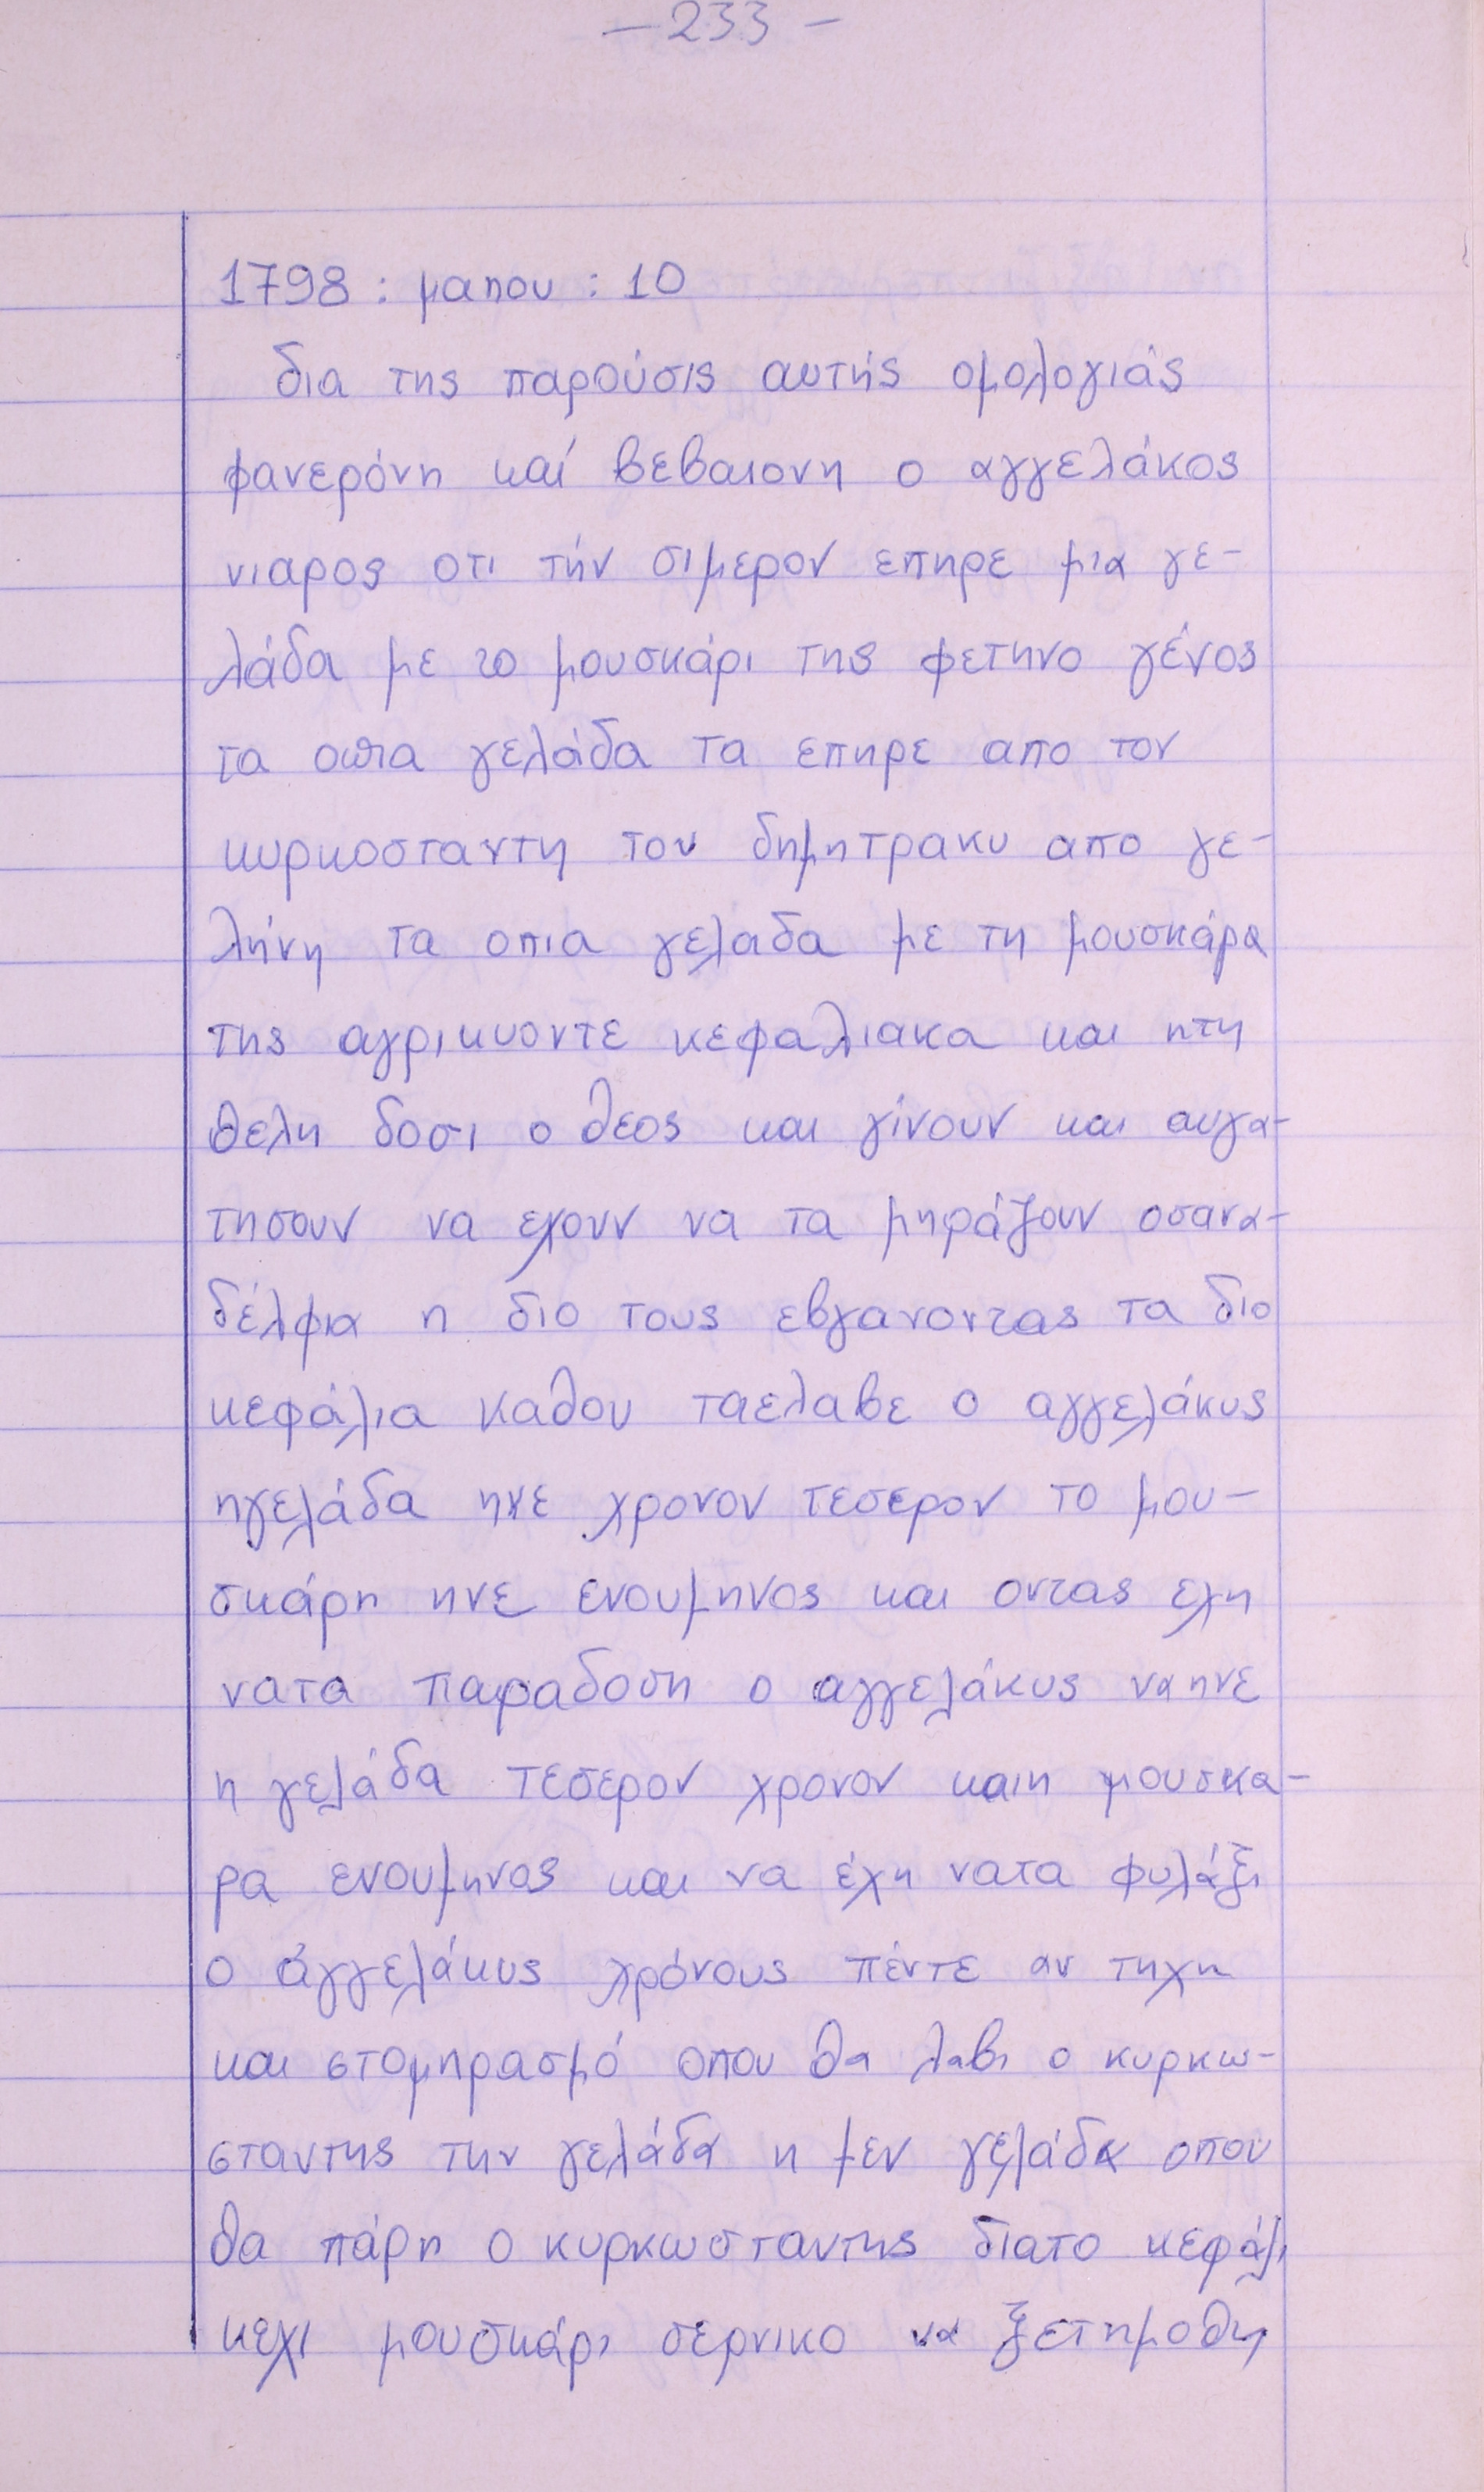 — 233 —
1798 : μαπου : 10
δια της παρούσις αυτής ομολογιάς
φανερόνη καί βεβαιονη ο αγγελάκος
νιαρος οτι τήν σιμερον επηρε μια γε-
λάδα με το μουσκάρι της φετηνο γένος
τα οπια γελάδα τα επηρε απο τον
κυρκοσταντη του δημητρακυ απο γε-
λήνη τα οπια γελαδα με τη μουσκάρα
της αγρικυοντε κεφαλιακα και ητη
θελη δοσι ο θεος και γίνουν και αυγα-
τησουν να εχουν να τα μηράζουν οσανα-
δέλφια η διο τους εβγανοντας τα διο
κεφάλια καθου ταελαβε ο αγγελάκυς
ηγελάδα ηνε χρονον τεσερον το μου-
σκάρη ηνε ενουμηνος και οντας εχη
νατα παραδοση ο αγγελάκυς να ηνε
η γελάδα τεσερον χρονον καιη μουσκα-
ρα ενουμηνος και να έχη νατα φυλάξι
ο άγγελάκυς χρόνους πέντε αν τηχη
και στομηρασμό οπου θα λαβι ο κυρκω-
σταντης την γελάδα η μεν γελάδα οπου
θα πάρη ο κυρκωσταντης διατο κεφάλι
κεχι μουσκάρι σερνικο να ξετημοθη